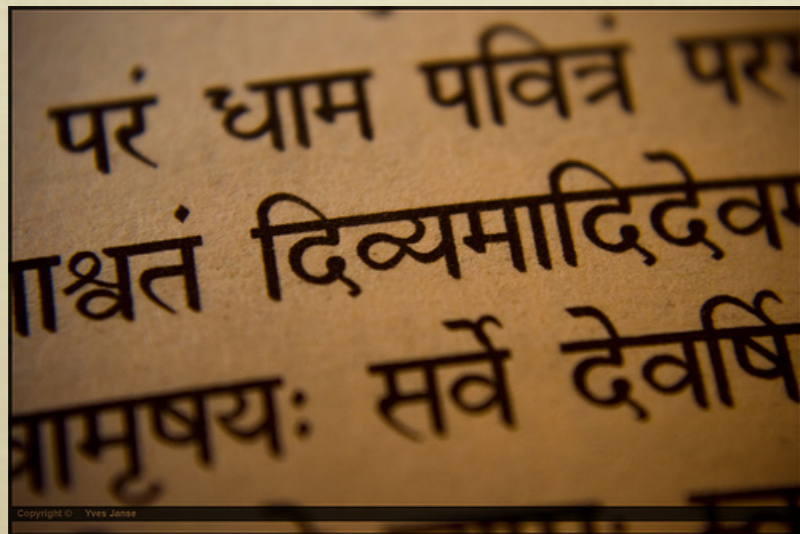 परं धाम पवित्रं
ाश्वतं दिव्यमादिदेवम
ामृषयः सर्वे देवर्षि
Copyright © Yves Janse